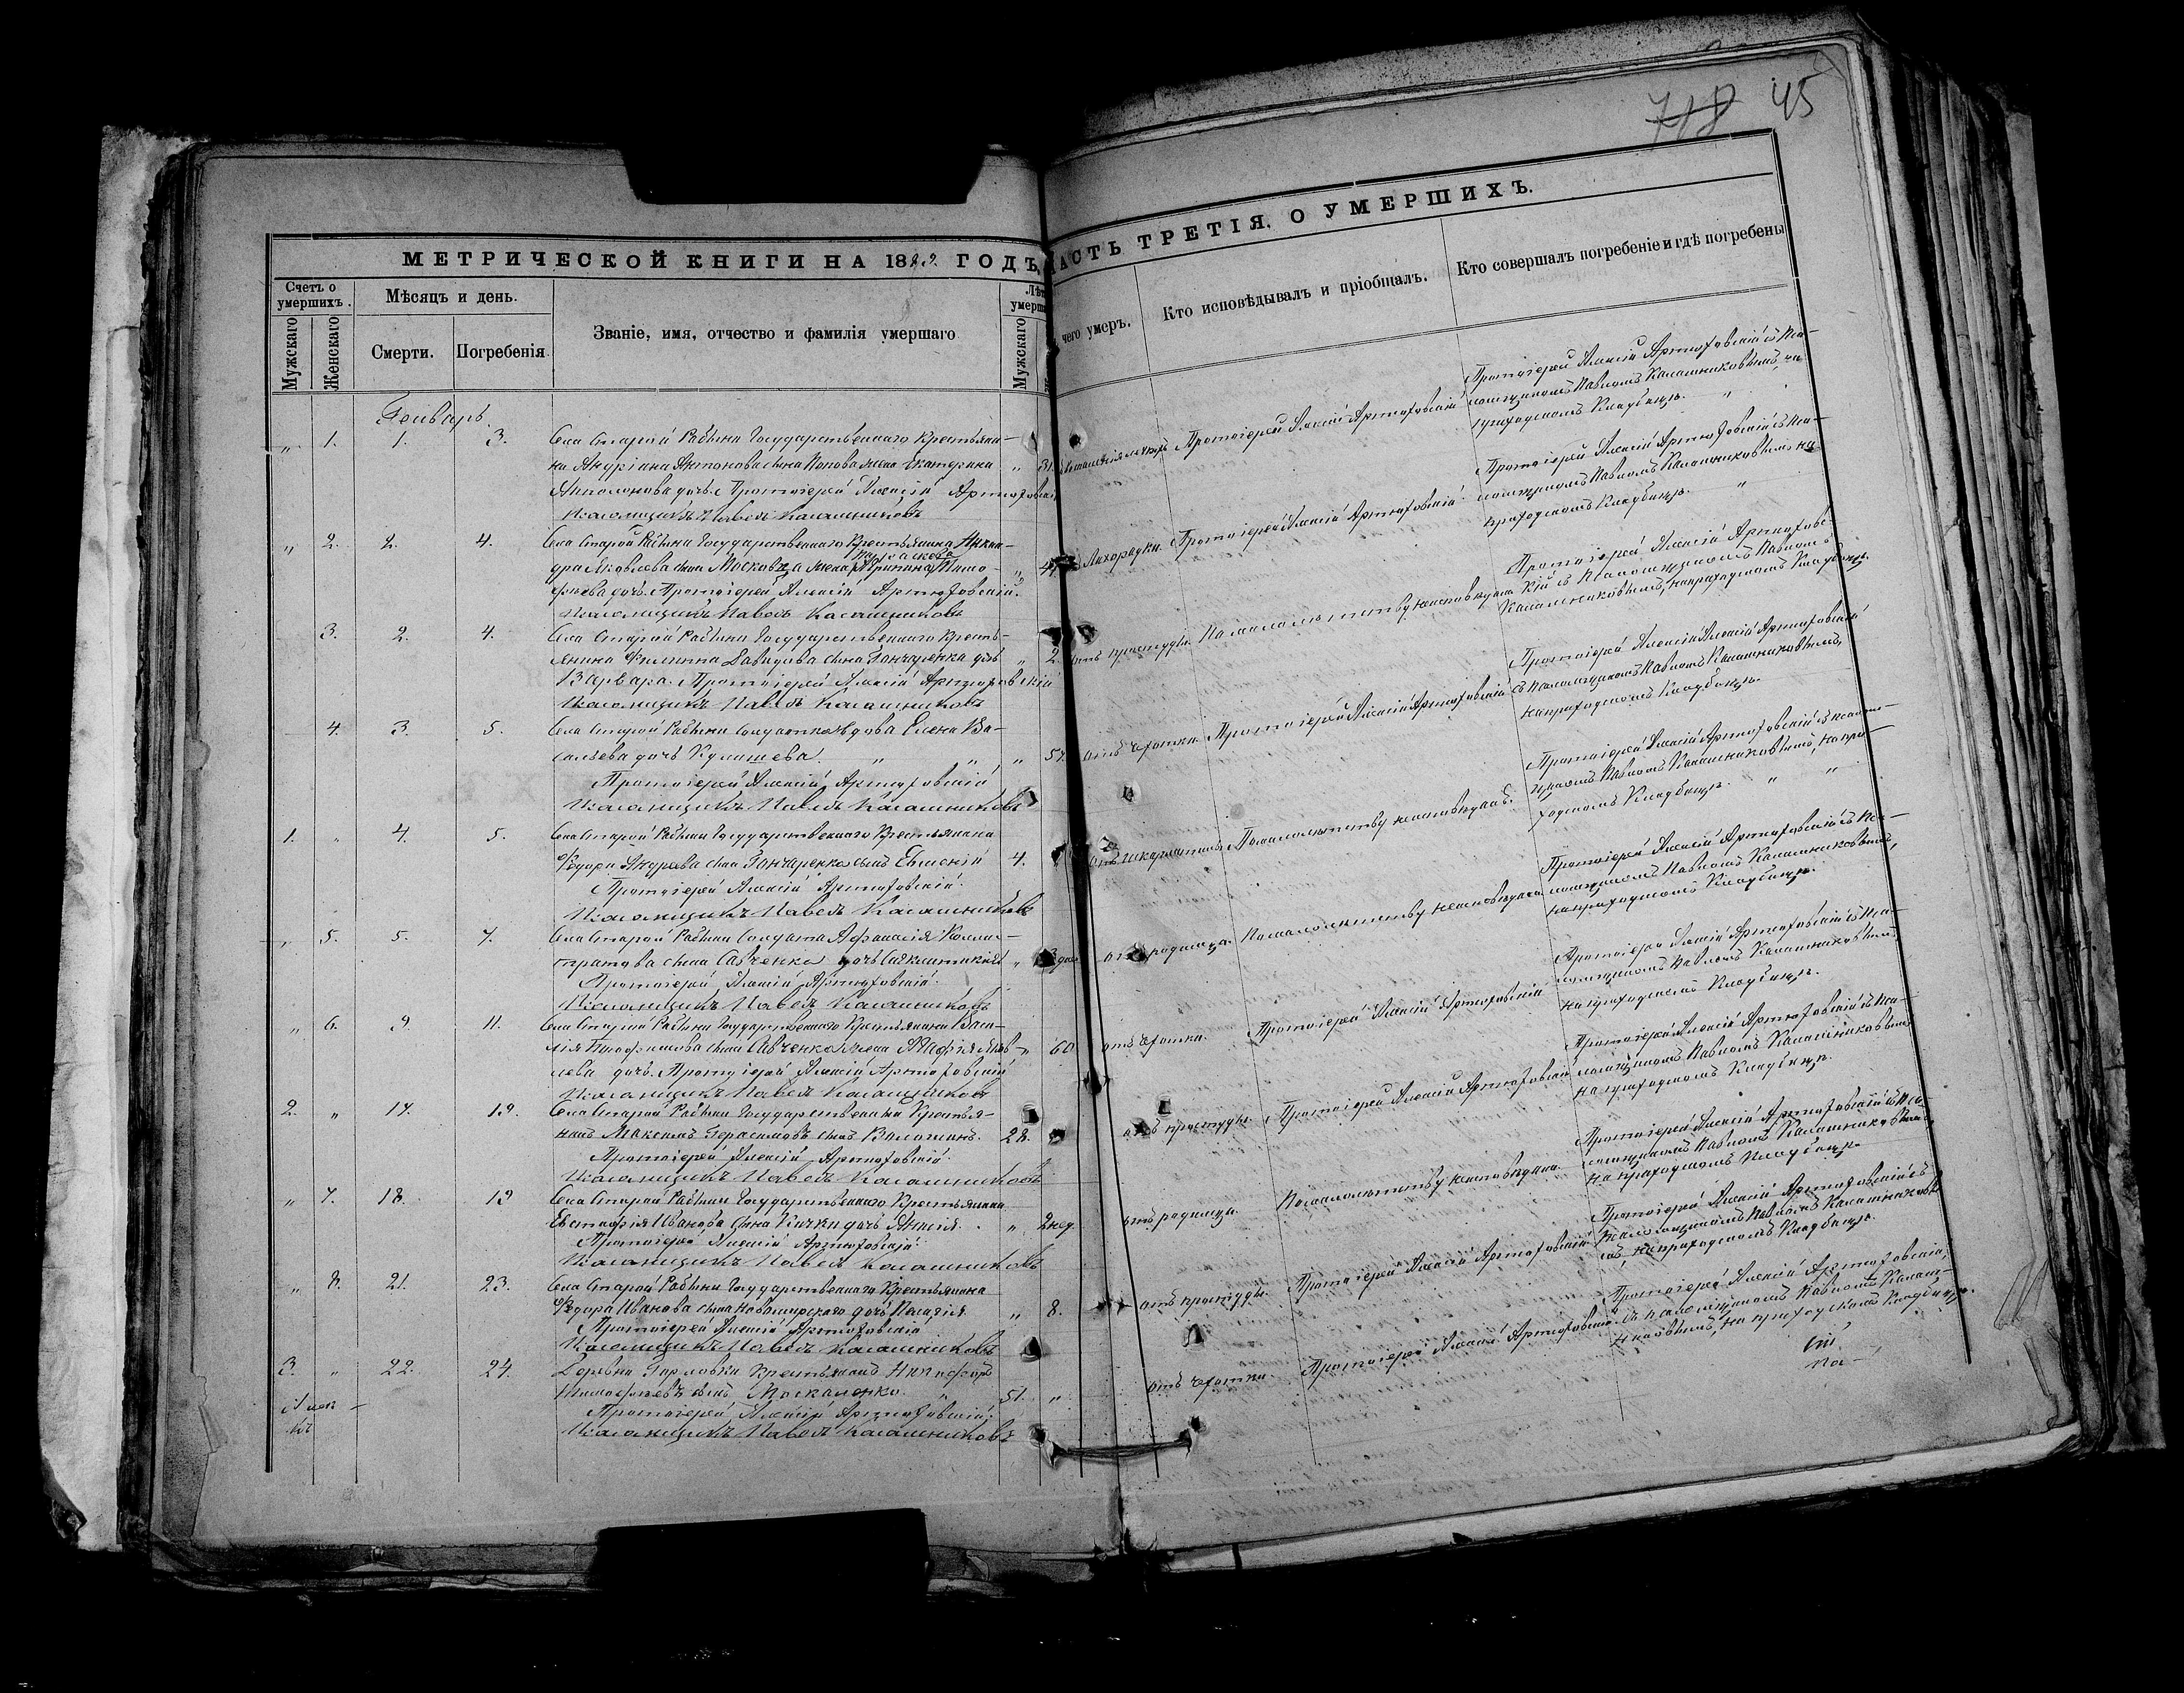 718 45
МЕТРИЧЕСКОЙ КНИГИ НА 1882. ГОДЪ,
ЧАСТЬ ТРЕТІЯ, О УМЕРШИХЪ.
Счетъ о умершихъ.
Мужскаго
Женскаго
Мѣсяцъ и день.
Смерти.
Погребенія.
Званіе, имя, отчество и фамилія умершаго
Мужскаго
чего умеръ.
Кто исповѣдывалъ и пріобщалъ.
Кто совершалъ погребеніе и гдѣ погребены
Генварь
„ 1. 1. 3.
Села Старой Рябины Государственнаго Крестьяни-
на Андріана Антонова сына Попова жена Екатерина
дочь. Протоіерей Алексій Артюховскій
Псаломщикъ Павелъ Калашниковъ
Протоіерей Алексій Артюховскій
Протоіерей Алексій Артюховскій съ Пса-
ломщикомъ Павломъ Калашниковымъ, на
приходскомъ Кладбищѣ. „
„ 2. 2. 4.
Села Старой Рябины Государственнаго Крестьянина Никан-
дра Яковлева сына жена Тимо-
феева дочь. Протоіерей Алексій Артюховскій.
Псаломщикъ Павелъ Калашниковъ
Лихорадки.
Протоіерей Алексій Артюховскій
Протоіерей Алексій Артюховскій съ Пса-
ломщикомъ Павломъ Калашниковымъ на
приходскомъ Кладбищѣ. „
3. 2. 4.
Села Старой Рябины Государственнаго Кресть-
янина Филиппа Давидова сына Гончаренка дочь „ 2.
Варвара. Протоіерей Алексій Артюховскій
Псаломщикъ Павелъ Калашниковъ
отъ простуды.
По малолѣтству неисповѣдана
Протоіерей Алексій Артюхов-
скій съ Псаломщикомъ Павломъ
Калашниковымъ, на приходскомъ Кладбищѣ.
4. 3. 5.
Села Старой Рябины Солдатка вдова Елена Ва-
сильева дочь „ „ „ 57.
Протоіерей Алексій Артюховскій
Псаломщикъ Павелъ Калашниковъ
отъ чахотки.
Протоіерей Алексій Артюховскій
съ Псаломщикомъ Павломъ Калашниковымъ,
на приходскомъ Кладбищѣ.
1. „ 4. 5.
Села Старой Рябины Государственнаго Крестьянина
Федора Андреева сына Гончаренка сынъ Евгеній 4.
Протоіерей Алексій Артюховскій.
Псаломщикъ Павелъ Калашниковъ
По малолѣтству неисповѣданъ.
Протоіерей Алексій Артюховскій съ Псалом-
щикомъ Павломъ Калашниковымъ, на при-
ходскомъ Кладбищѣ. „ „
„ 5. 5. 7.
Села Старой Рябины Солдата Афанасія Калли-
стратова сына Савченка дочь „
Протоіерей Алексій Артюховскій.
Псаломщикъ Павелъ Калашниковъ
отъ родимца.
По малолѣтству неисповѣдана
Протоіерей Алексій Артюховскій съ Пса-
ломщикомъ Павломъ Калашниковымъ,
на приходскомъ Кладбищѣ.
„ 6. 9. 11.
Села Старой Рябины Государственнаго Крестьянина Васи-
лія сына Савченка жена Марія Яков- „ 60
лева дочь. Протоіерей Алексій Артюховскій
Псаломщикъ Павелъ Калашниковъ
отъ чахотки.
Протоіерей Алексій Артюховскій
Протоіерей Алексій Артюховскій съ Пса-
ломщикомъ Павломъ Калашниковымъ
на приходскомъ Кладбищѣ.
2. „ 17. 19.
Села Старой Рябины Государственный Крестья-
нинъ Максимъ Герасимовъ сынъ Волошинъ. 28.
Протоіерей Алексій Артюховскій.
Псаломщикъ Павелъ Калашниковъ
отъ простуды.
Протоіерей Алексій Артюховскій
Протоіерей Алексій Артюховскій съ Пса-
ломщикомъ Павломъ Калашниковымъ
на приходскомъ Кладбищѣ.
„ 7. 18. 19
Села Старой Рябины Государственнаго Крестьянина
Евстафія Иванова сына дочь Анисія. „ 2 нед.
Протоіерей Алексій Артюховскій
Псаломщикъ Павелъ Калашниковъ
отъ родимца.
По малолѣтству неисповѣдана.
Протоіерей Алексій Артюховскій съ Пса-
ломщикомъ Павломъ Калашниковымъ,
на приходскомъ Кладбищѣ.
„ 8. 21. 23.
Села Старой Рябины Государственнаго Крестьянина
Федора Иванова сына дочь Пелагія „ 8.
Протоіерей Алексій Артюховскій
Псаломщикъ Павелъ Калашниковъ
отъ простуды.
Протоіерей Алексій Артюховскій
Протоіерей Алексій Артюховскій съ
Псаломщикомъ Павломъ Калашниковы-
мъ, на приходскомъ Кладбищѣ.
3. „ 22. 24.
Деревни Крестьянинъ Никифоръ
Тимофеевъ сынъ Москаленко. 51. „
Протоіерей Алексій Артюховскій.
Псаломщикъ Павелъ Калашниковъ
отъ чахотки.
Протоіерей Алексій Артюховскій
Протоіерей Алексій Артюховскій,
съ псаломщикомъ Павломъ Калаш-
никовымъ, на приходскомъ Кладбищѣ.